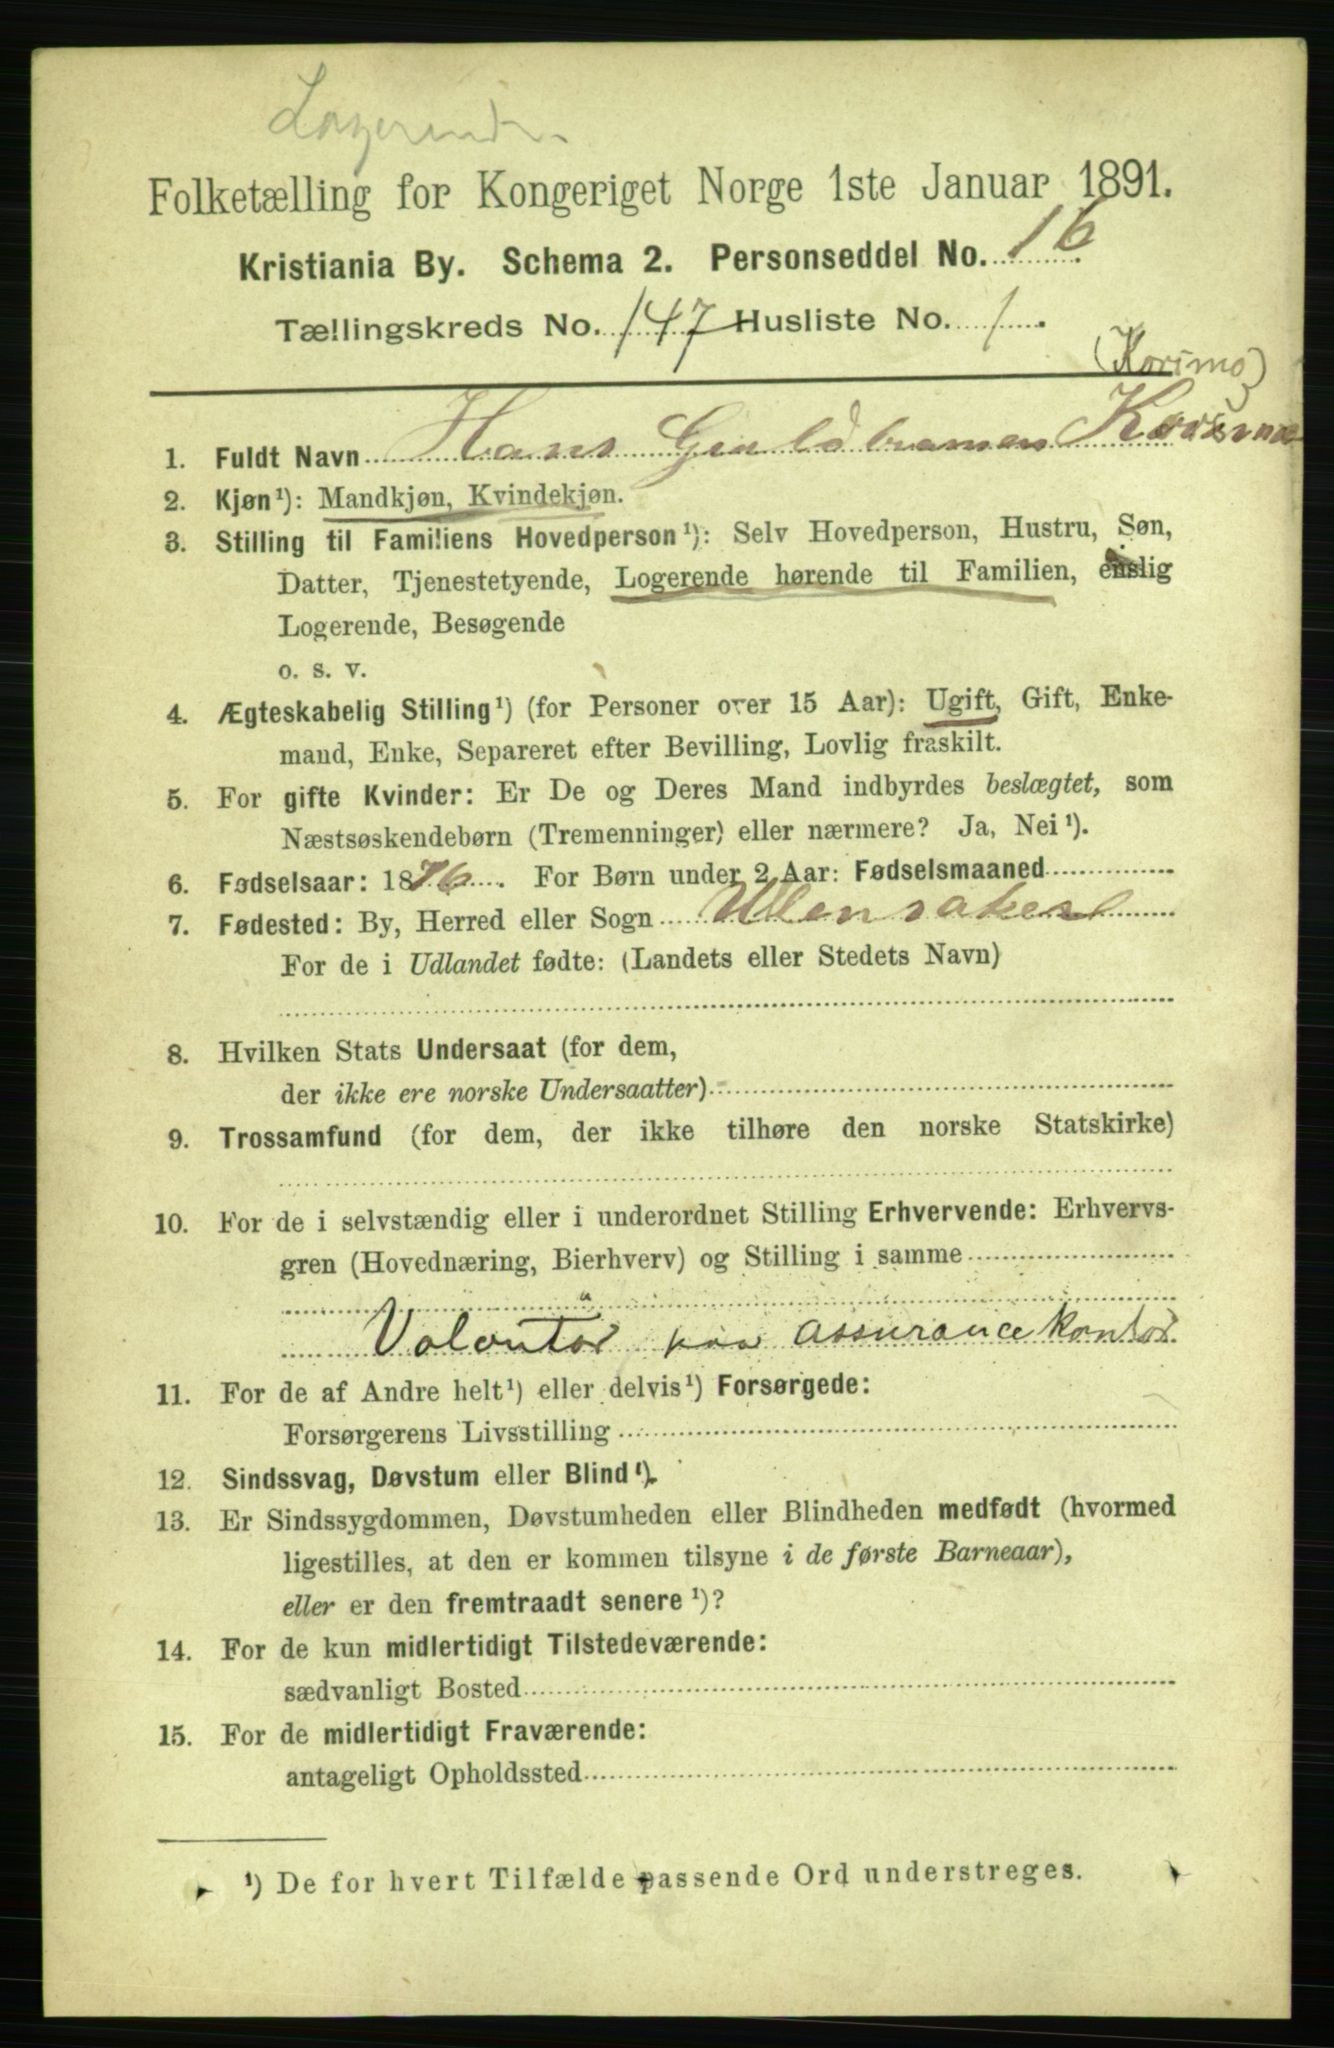 Logerende
Folketælling for Kongeriget Norge 1ste Januar 1891.
Kristiania By. Schema 2. Personseddel No. 16
Tællingskreds No. 147 Husliste No. 1.
(Korsmo)
1. Fuldt Navn Hans Guldbransen Korsmo
2. Kjøn¹): Mandkjøn, Kvindekjøn.
3. Stilling til Familiens Hovedperson¹): Selv Hovedperson, Hustru, Søn,
Datter, Tjenestetyende, Logerende hørende til Familien, enslig
Logerende, Besøgende
o. s. v.
4. Ægteskabelig Stilling¹) (for Personer over 15 Aar): Ugift, Gift, Enke-
mand, Enke, Separeret efter Bevilling, Lovlig fraskilt.
5. For gifte Kvinder: Er De og Deres Mand indbyrdes beslægtet, som
Næstsøskendebørn (Tremenninger) eller nærmere? Ja, Nei¹).
6. Fødselsaar: 1876. For Børn under 2 Aar: Fødselsmaaned
7. Fødested: By, Herred eller Sogn Ullensaker
For de i Udlandet fødte: (Landets eller Stedets Navn)
8. Hvilken Stats Undersaat (for dem,
der ikke ere norske Undersaatter)
9. Trossamfund (for dem, der ikke tilhøre den norske Statskirke)
10. For de i selvstændig eller i underordnet Stilling Erhvervende: Erhvervs-
gren (Hovednæring, Bierhverv) og Stilling i samme
Volontør paa assurancekontor
11. For de af Andre helt¹) eller delvis¹) Forsørgede:
Forsørgerens Livsstilling
12. Sindssvag, Døvstum eller Blind¹).
13. Er Sindssygdommen, Døvstumheden eller Blindheden medfødt (hvormed
ligestilles, at den er kommen tilsyne i de første Barneaar),
eller er den fremtraadt senere¹)?
14. For de kun midlertidigt Tilstedeværende:
sædvanligt Bosted
15. For de midlertidigt Fraværende:
antageligt Opholdssted
¹) De for hvert Tilfælde passende Ord understreges.